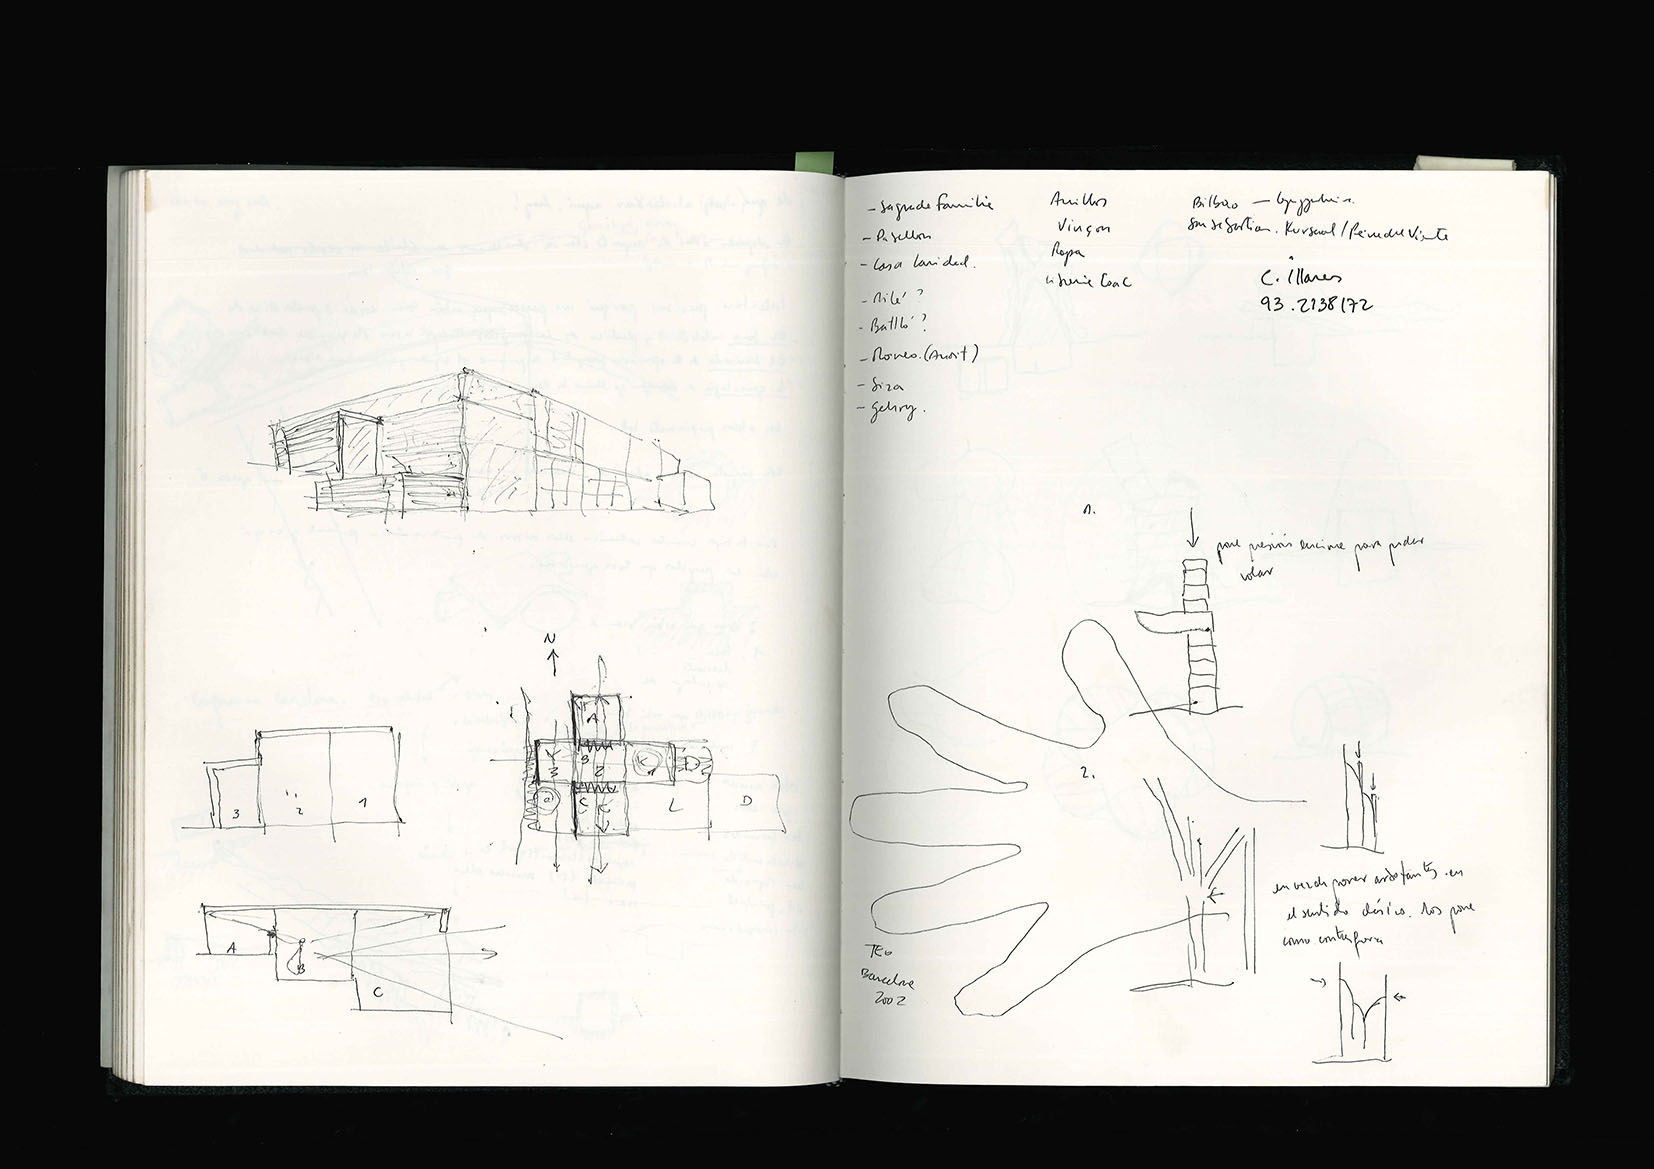 N
A
B
2
3
K
D
@
C
L
D
3
2
1
A
B
C
- Sagrada Familia
- Pabellon
- Casa Caridad.
- Milá ?
- Batlló ?
- Moneo. (Audit)
- Siza
- Gehry.
Anillos
Vinçon
Ropa
Libreria Coac
Bilbao — Guggenheim.
San Sebastian. Kursaal / Peine del Viento
C. Illares
93.2138172
1.
pone presión encima para poder
volar
2.
en vez de poner arbotantes en
el sentido clásico. los pone
como contrafuerte
Teo
Barcelona
2002